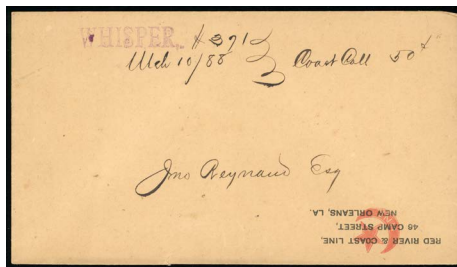 WHISPER,
# 391
Mch 10/88 Coast Call 50¢
Jno Reynaud Esq
RED RIVER & COAST LINE,
48 CAMP STREET,
NEW ORLEANS, LA.